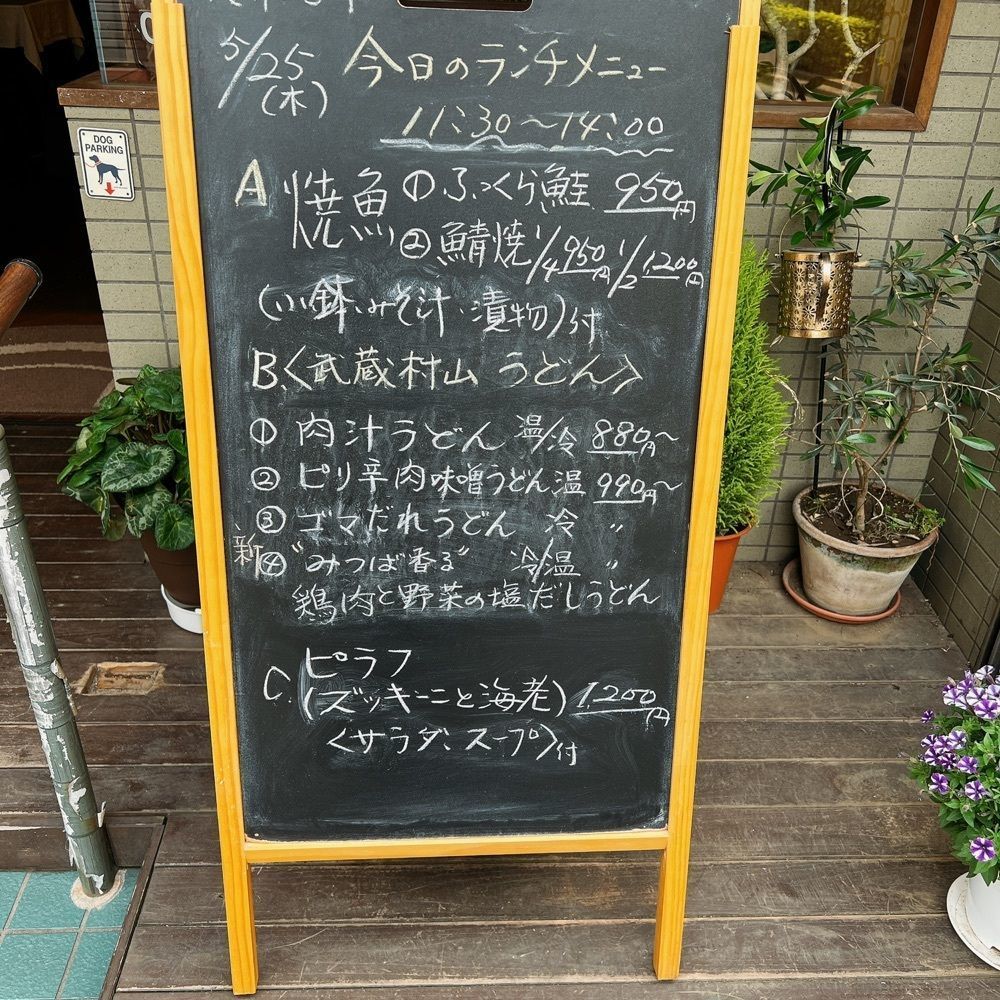 5/25(木) 今日のランチメニュー
11:30～14:00
A 焼魚 ①ふっくら鮭 950円
②鯖焼 1/4 950円 1/2 1200円
(小鉢、みそ汁・漬物)付
B.〈武蔵村山 うどん〉
① 肉汁うどん 温/冷 880円～
② ピリ辛肉味噌うどん 温 990円～
③ ゴマだれうどん 冷 〃
新 ④ "みつば香る" 冷/温 〃
鶏肉と野菜の塩だしうどん
C. ピラフ
(ズッキーニと海老) 1,200円
〈サラダ、スープ〉付
DOG
PARKING